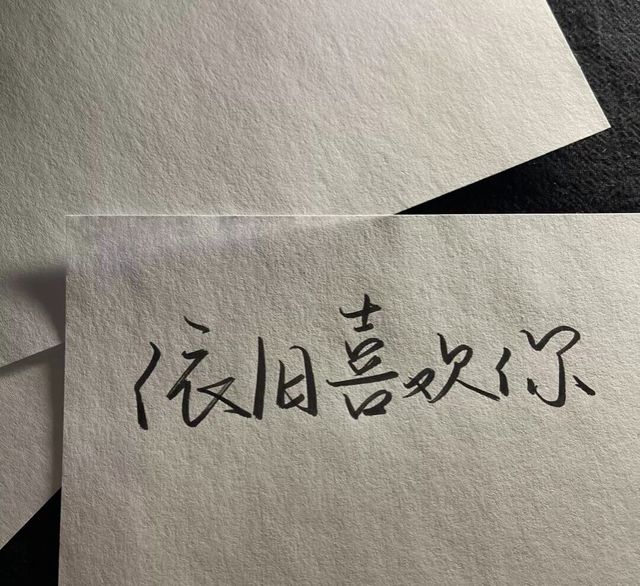 依旧喜欢你